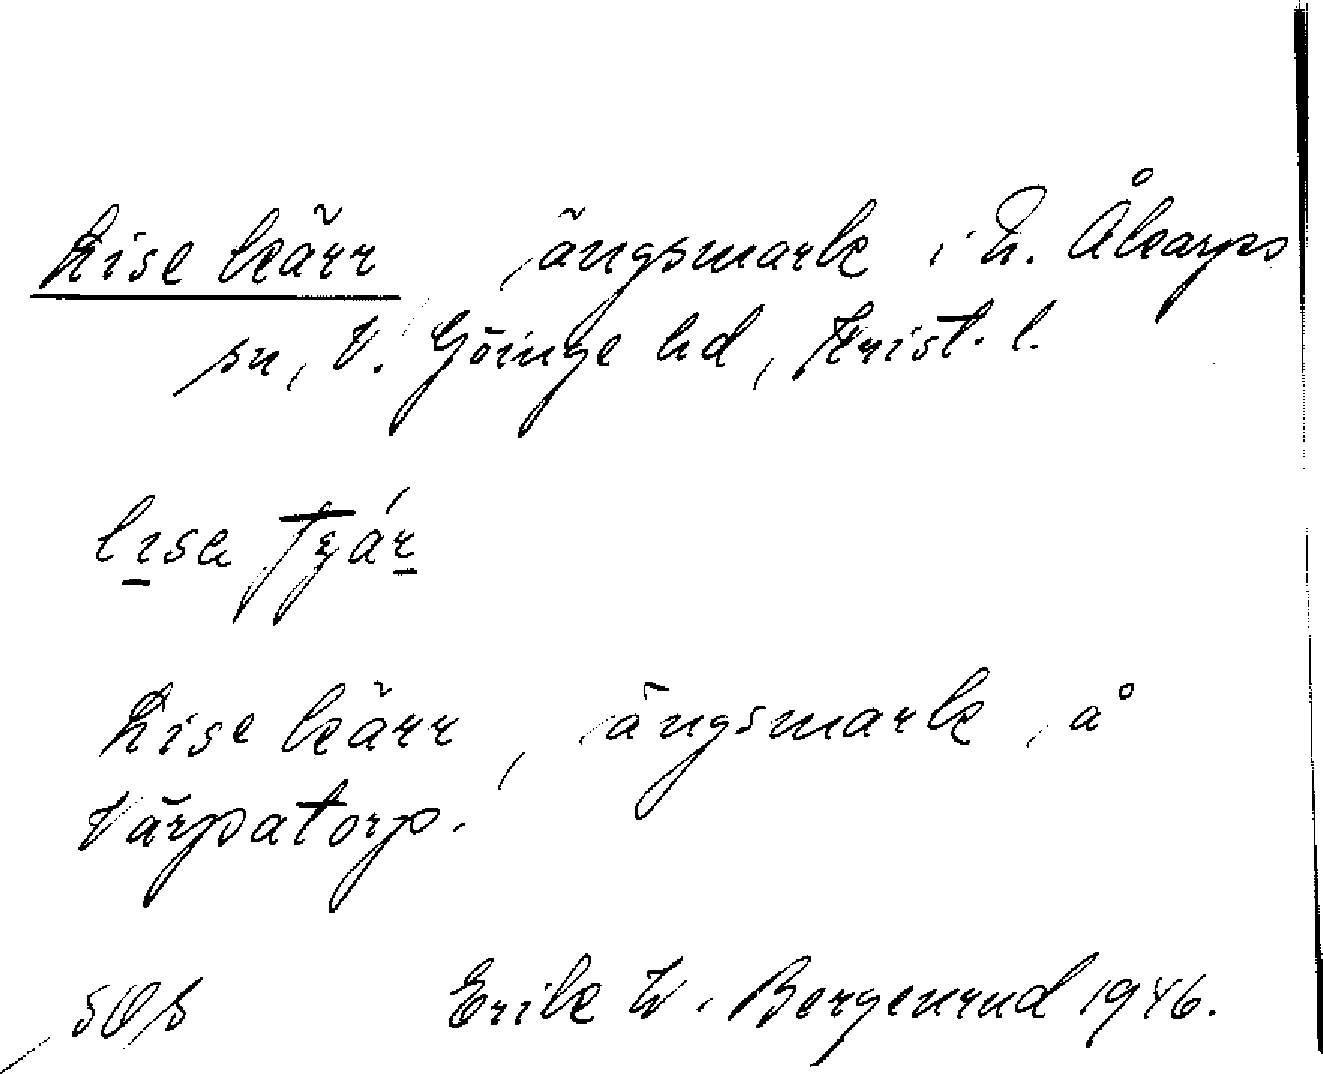 Lise kärr ängsmark i N. Åkarps
sn, V. Göinge hd, Krist. l.
Lise kärr, ängsmark å
Värpatorp.
Erik W. Bergenrud 1946.